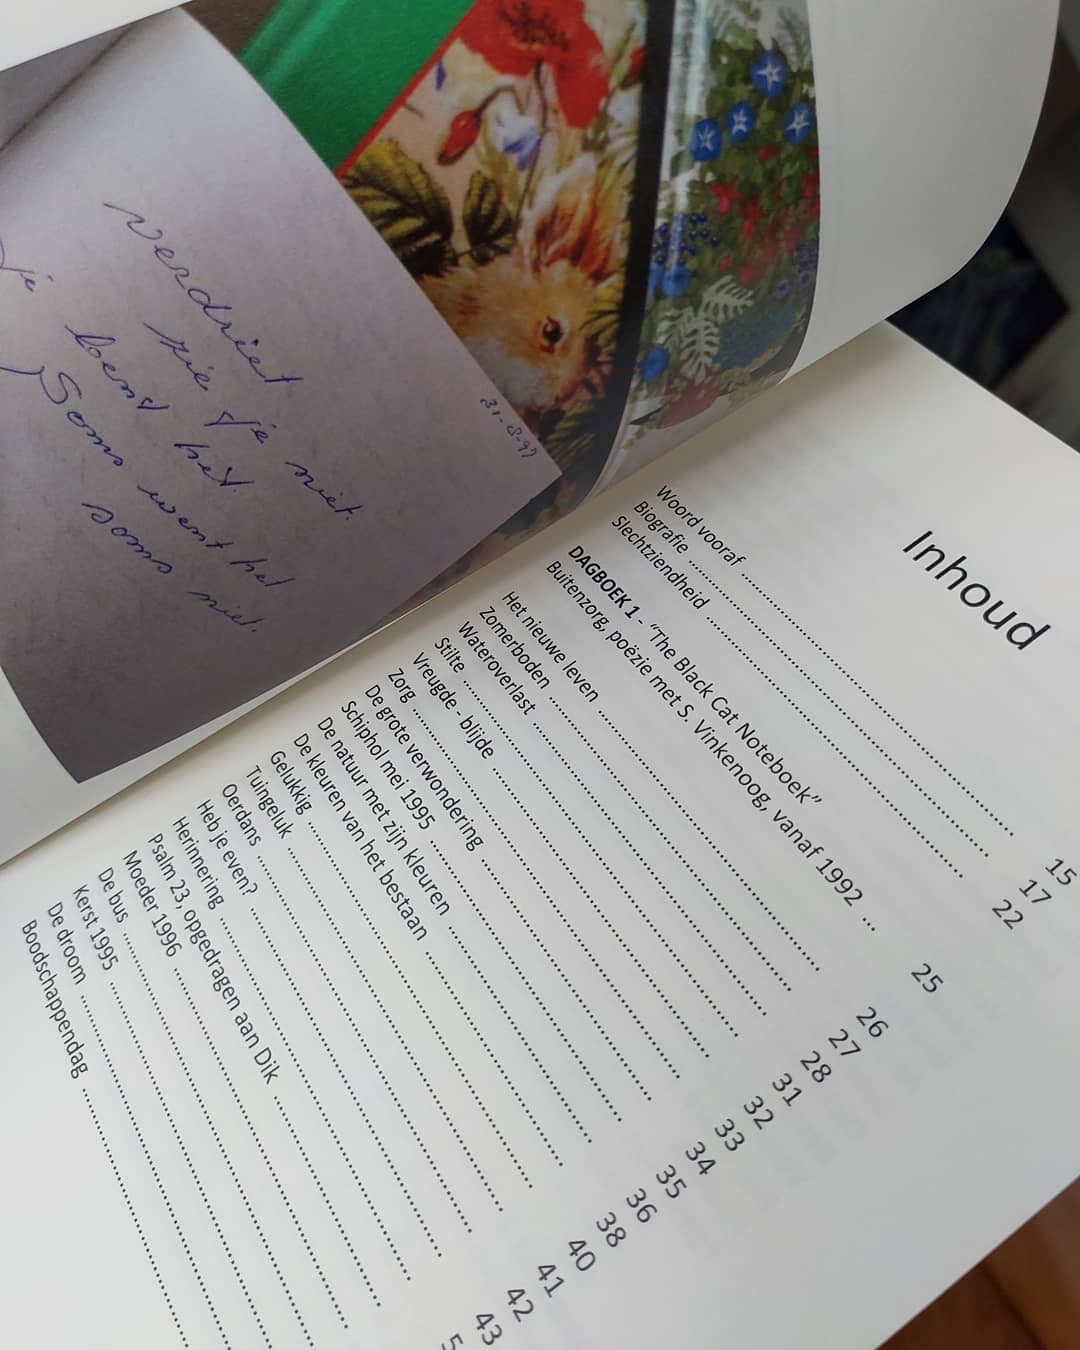 31-8-97
verdriet
zie je niet.
je bend het.
Soms went het
soms niet.
Inhoud
Woord vooraf ........ 15
Biografie ........ 17
Slechtziendheid ........ 22
DAGBOEK 1 - “The Black Cat Notebook”
Buitenzorg, poëzie met S. Vinkenoog, vanaf 1992 ... 25
Het nieuwe leven ........ 26
Zomerboden ........ 27
Wateroverlast ........ 28
Stilte ........ 31
Vreugde - blijde ........ 32
Zorg ........ 33
De grote verwondering ........ 34
Schiphol mei 1995 ........ 35
De natuur met zijn kleuren ........ 36
De kleuren van het bestaan ........ 38
Gelukkig ........ 40
Tuingeluk ........ 41
Oerdans ........ 42
Heb je even? ........ 43
Herinnering ........
Psalm 23, opgedragen aan Dik ........
Moeder 1996 ........
De bus ........
Kerst 1995 ........
De droom ........
Boodschappendag ........